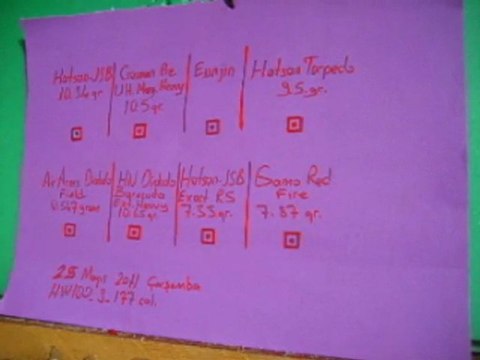 Hatsan-JSB
10.34 gr.
Crosman Pre.
U.H. Mag. Heavy
10.5 gr.
Eunjin
Hatsan Torpedo
9.5 gr.
Air Arms Diabolo
Field
gram
HN Diabolo
Baracuda
Ext. Heavy
10.65 gr.
Hatsan-JSB
Exact RS
7.33 gr.
Gamo Red
Fire
7.87 gr.
25 Mayıs 2011 Çarşamba
.177 cal.